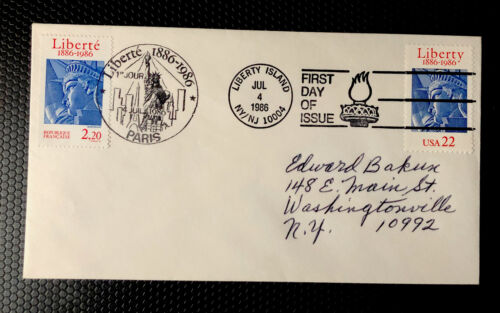 Liberté
1886-1986
REPUBLIQUE
FRANÇAISE
2,20
Liberté 1886-1986
1er JOUR
PARIS
LIBERTY ISLAND
JUL
4
1986
NY/NJ 10004
FIRST
DAY
OF
ISSUE
Liberty
1886-1986
USA 22
Edward Bakun
148 E. Main St.
Washingtonville
N.Y. 10992